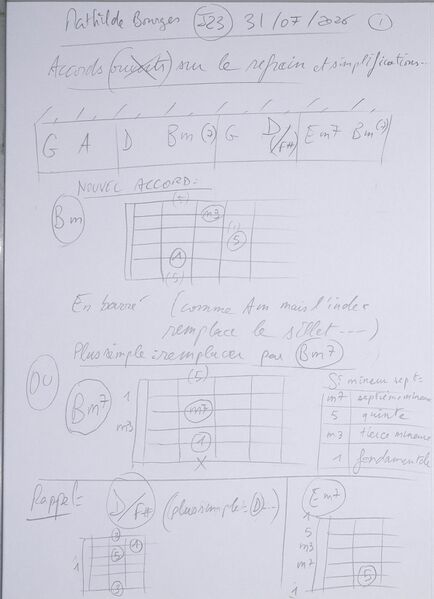 Mathilde Bourges 223 31/07/2026 1
Accords sur le refrain et simplifications...
G A D Bm(7) G D/F# Em7 Bm(7)
NOUVEL ACCORD:
Bm
(5)
m3
(1)
5
1
(5)
En barré (comme Am mais l'index
remplace le sillet ---)
Plus simple: remplacer par Bm7
OU
Bm7
(5)
1
m7
m3
1
X
mineur sept:
m7 septième mineure
5 quinte
m3 tierce mineure
1 fondamentale
Rappel:
D/F# (plus simple: D...)
3
1
5
1
3
Em7
1
5
m3
m7
5
1